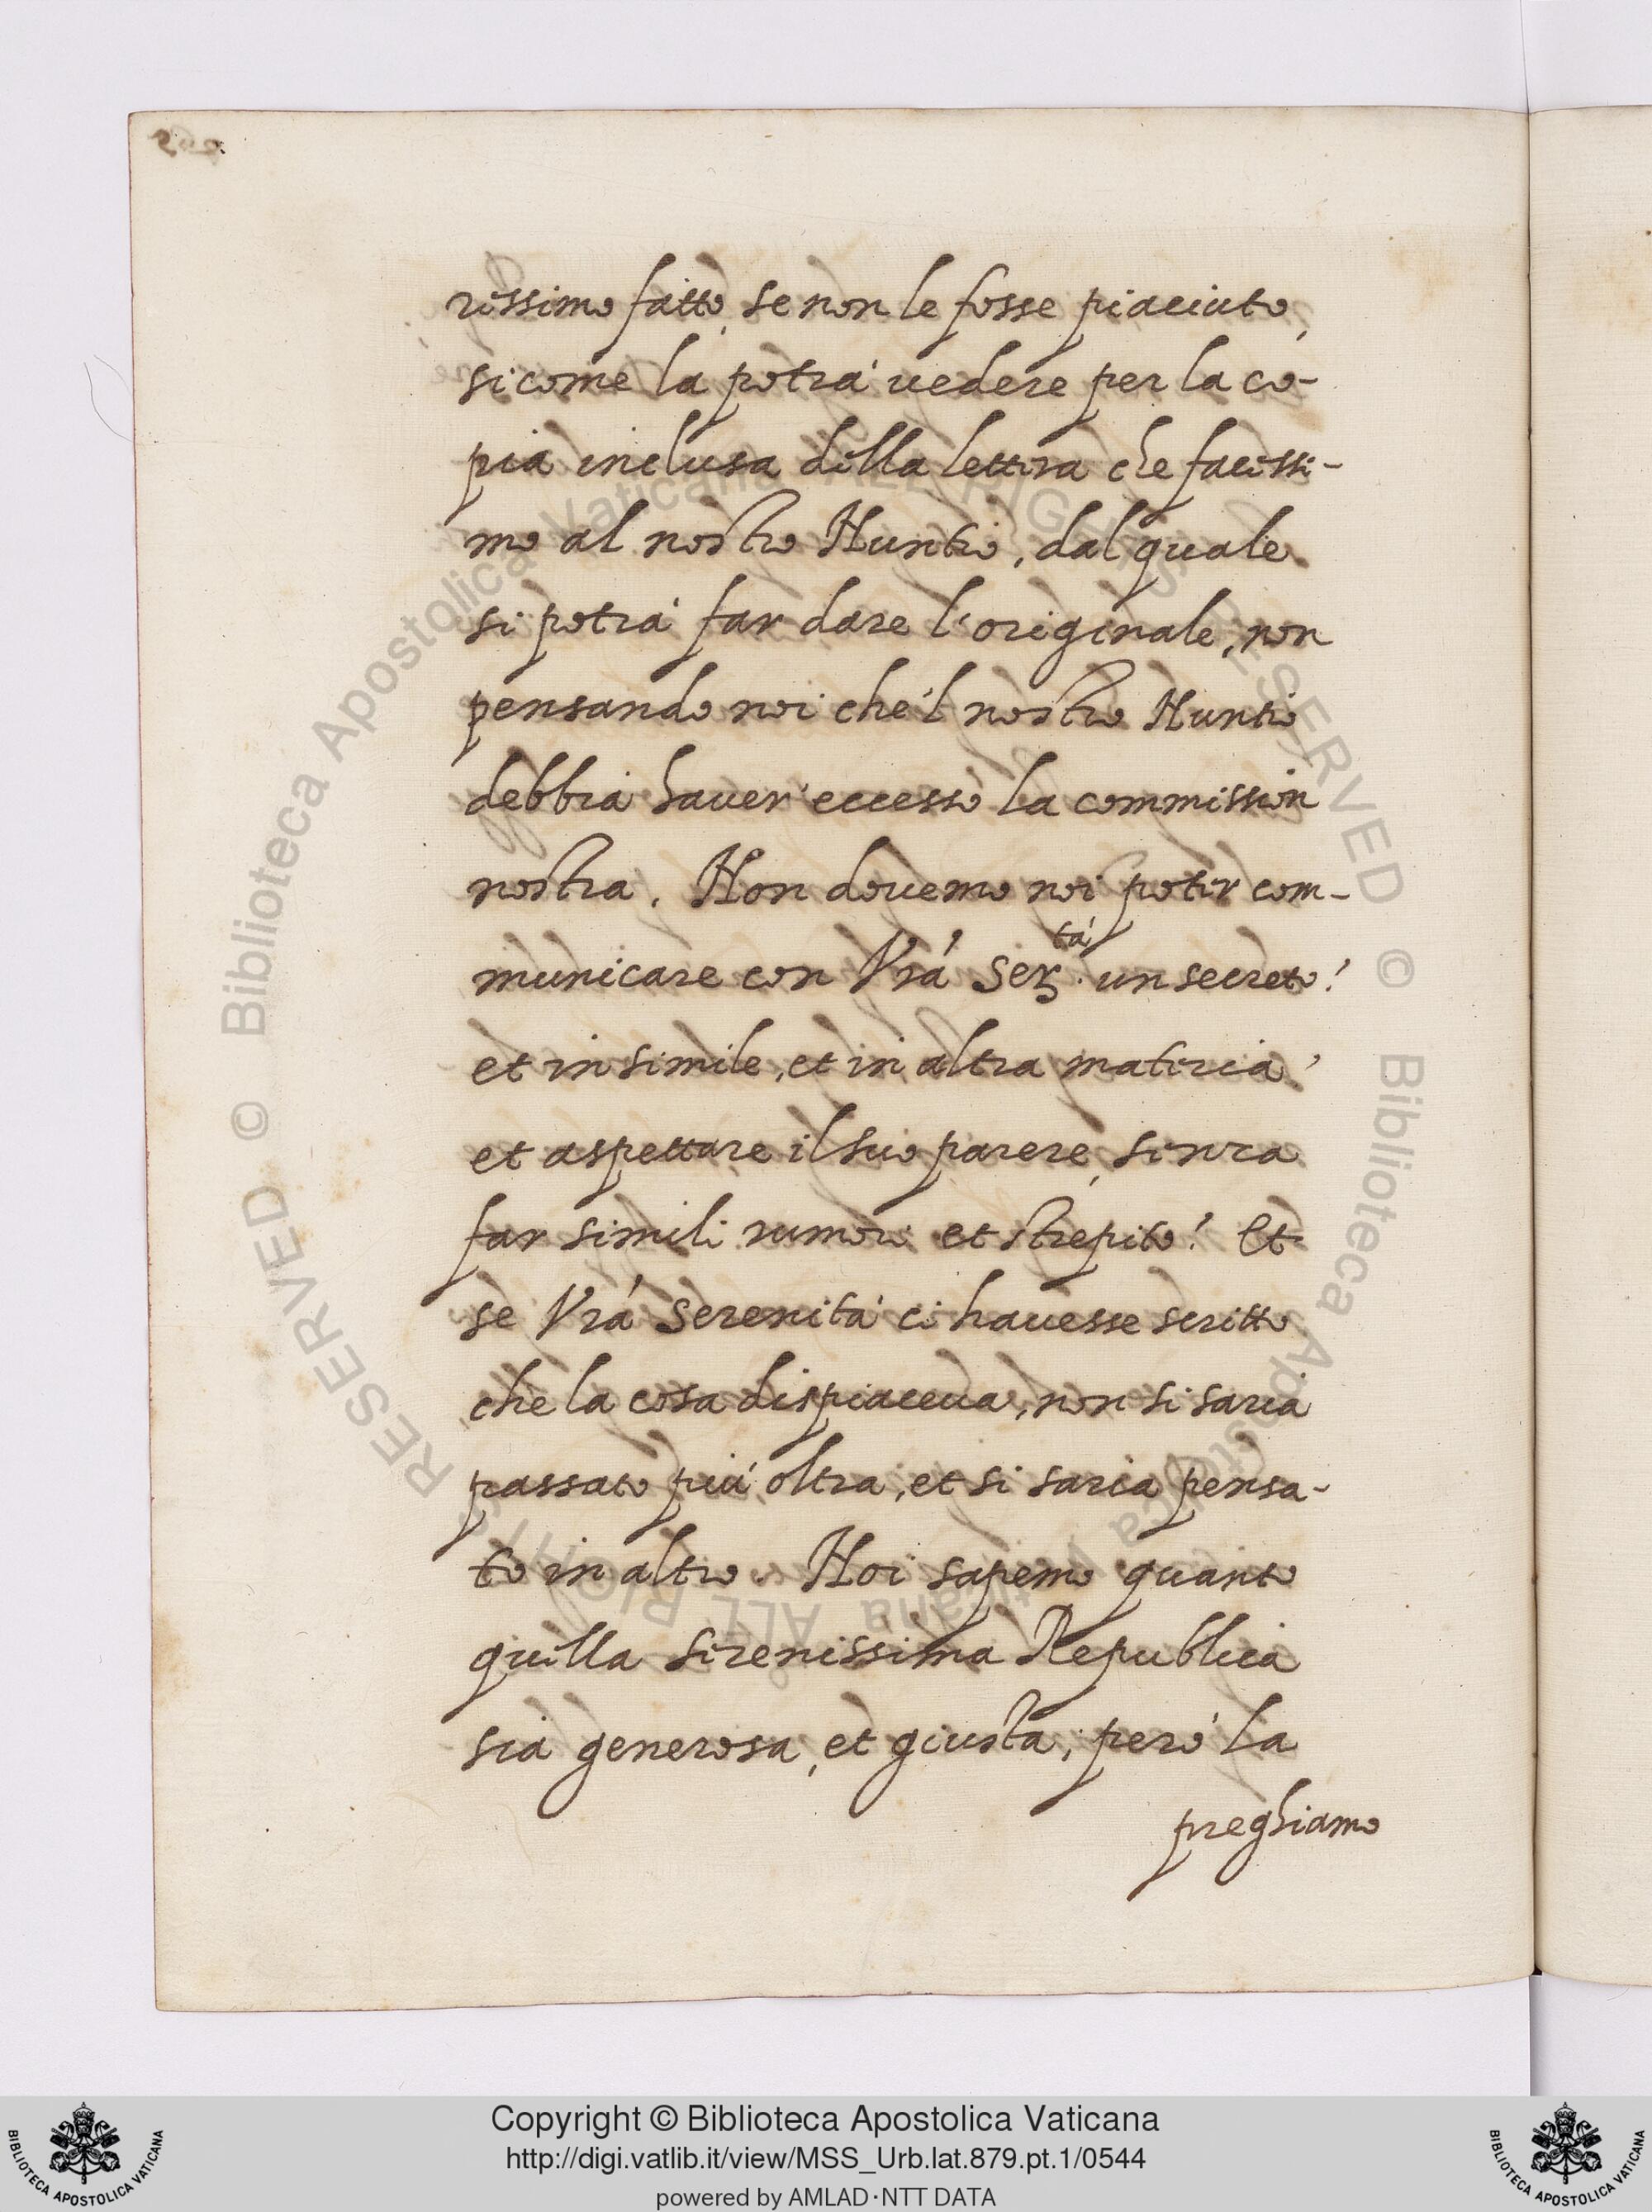 rissimo fatto, se non le fosse piaciuto,
si come la potrà uedere per la co-
pia inclusa della lettera che facessi-
mo al nostro Nuntio, dal quale
si potrà far dare l'originale, non
pensando noi che'l nostro Nuntio
debbia hauer' eccesso la commission
nostra. Non douemo noi poter com-
municare con Vrà Ser.tà un secreto?
et in simile, et in altra materia?
et aspettare il suo parere, senza
far simili rumori et strepito? Et
se Vrà Serenità ci hauesse scritto
che la cosa dispiaceua, non si saria
passato più oltra, et si saria pensa-
to in altro. Noi sapemo quanto
quella serenissima Republica
sia generosa, et giusta, però la
preghiamo
© Biblioteca Apostolica Vaticana ALL RIGHTS RESERVED © Biblioteca Apostolica Vaticana ALL RIGHTS RESERVED
Copyright © Biblioteca Apostolica Vaticana
http://digi.vatlib.it/view/MSS_Urb.lat.879.pt.1/0544
powered by AMLAD·NTT DATA
BIBLIOTECA APOSTOLICA VATICANA
BIBLIOTECA APOSTOLICA VATICANA